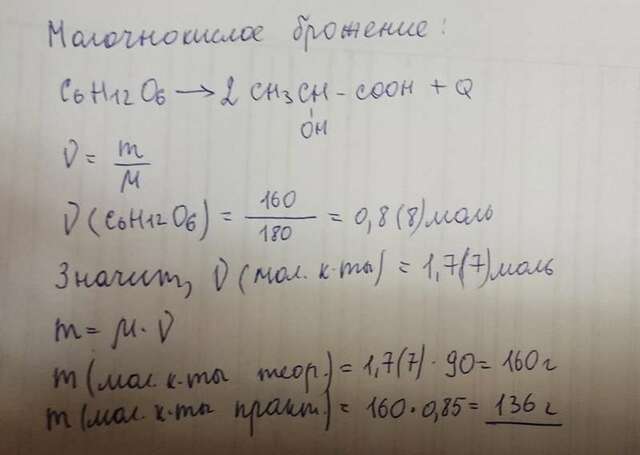 Молочнокислое брожение:
C6H12O6 → 2 CH3CH - COOH + Q
OH
ν = m
M
ν (C6H12O6) = 160 = 0,8(8) моль
180
Значит, ν (мол. к-ты) = 1,7(7) моль
m = M · ν
m (мол. к-ты теор.) = 1,7(7) · 90 = 160 г
m (мол. к-ты практ.) = 160 · 0,85 = 136 г